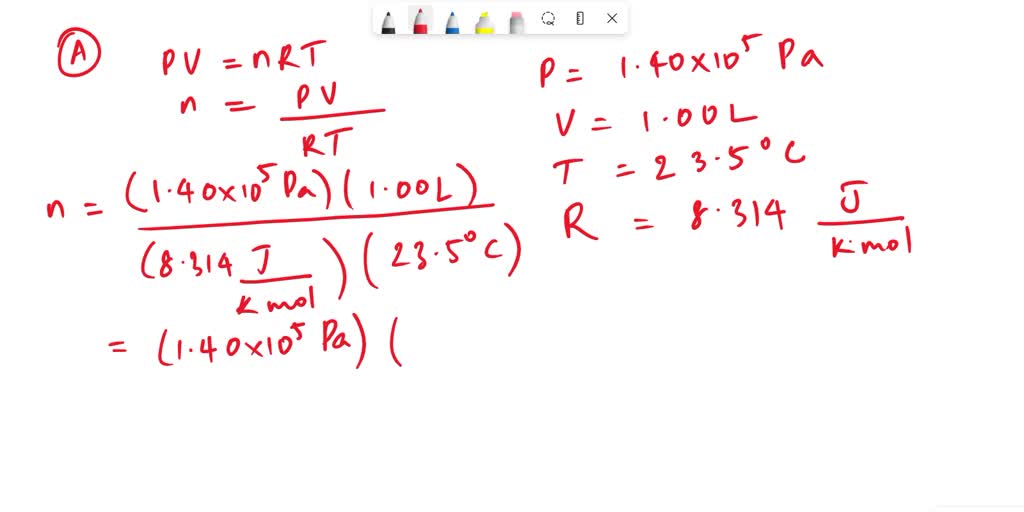 A
PV = nRT
n = PV / RT
n = (1.40×10⁵ Pa)(1.00L) / (8.314 J / K mol)(23.5°C)
= (1.40×10⁵ Pa) (
P = 1.40×10⁵ Pa
V = 1.00L
T = 23.5°C
R = 8.314 J / K·mol